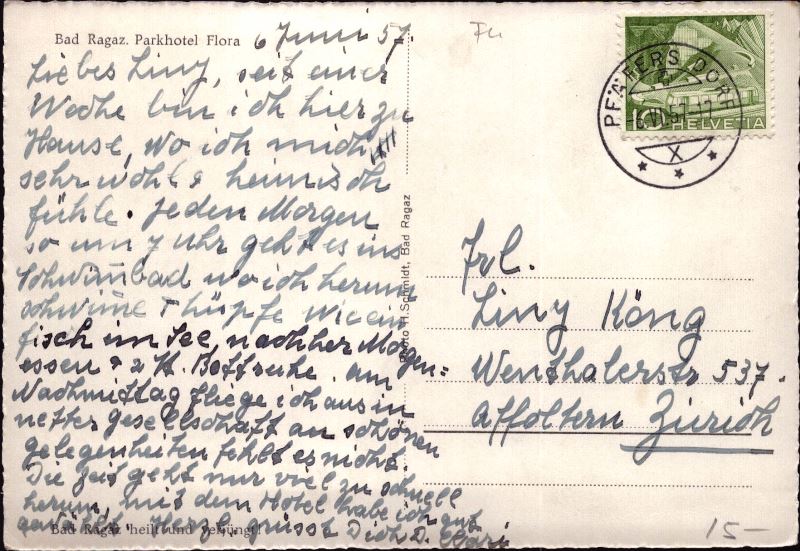 Bad Ragaz. Parkhotel Flora
6 Juni 57.
Liebes Liny, seit einer
Woche bin ich hier zu
Hause, wo ich mich
sehr wohl & heimisch
fühle. Jeden Morgen
so um 7 Uhr geht es ins
Schwimbad wo ich herum
schwime & hüpfe wie ein
fisch im See, nachher Morgen=
essen & 2 St. Bettruhe. am
Nachmittag fliege ich aus in
netter gesellschaft an schönen
gelegenheiten fehlt es nicht.
Die zeit geht nur viel zu schnell
herum, mit dem Hotel habe ich gut
Herzl. grüsst Dich D.
Bad Ragaz heilt und verjüngt!
Photo H. Schmidt, Bad Ragaz
PFÄFERS DORF
-6.VI.57-17
X
HELVETIA
5
Frl.
Liny Köng
Wenthalerstr 537.
Affoltern Zürich
15-